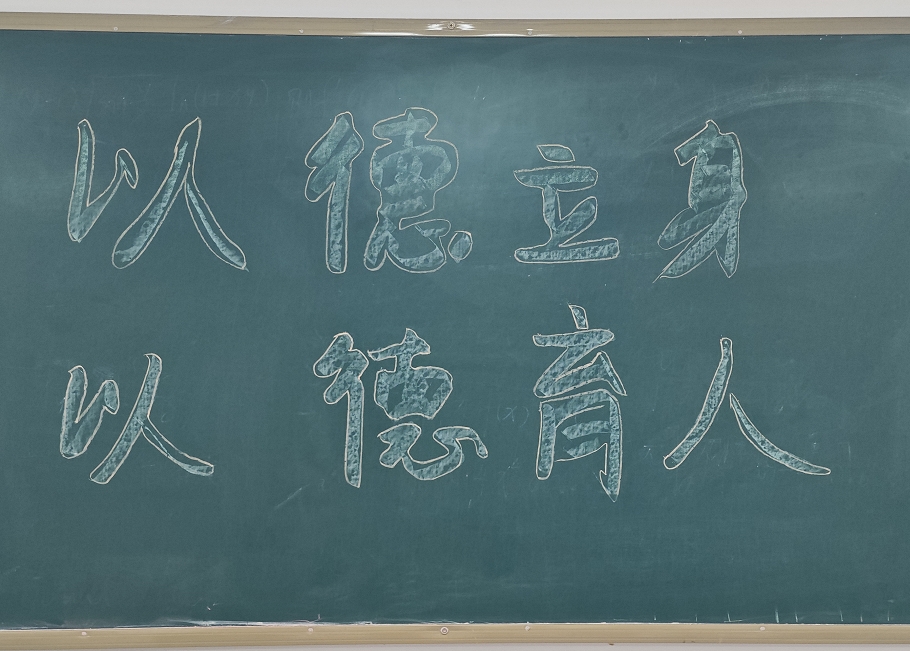 以德立身
以德育人